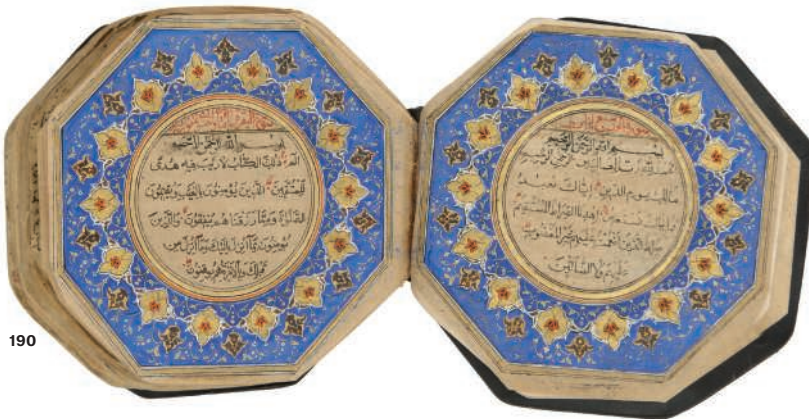 بسم الله الرحمن الرحيم
الحمد لله رب العالمين الرحمن الرحيم
مالك يوم الدين اياك نعبد
واياك نستعين اهدنا الصراط المستقيم
صراط الذين انعمت عليهم غير المغضوب
عليهم ولا الضالين
بسم الله الرحمن الرحيم
الم ذلك الكتاب لا ريب فيه هدى
للمتقين الذين يؤمنون بالغيب ويقيمون
الصلوة ومما رزقناهم ينفقون والذين
يؤمنون بما انزل اليك وما انزل من
قبلك وبالاخرة هم يوقنون
190